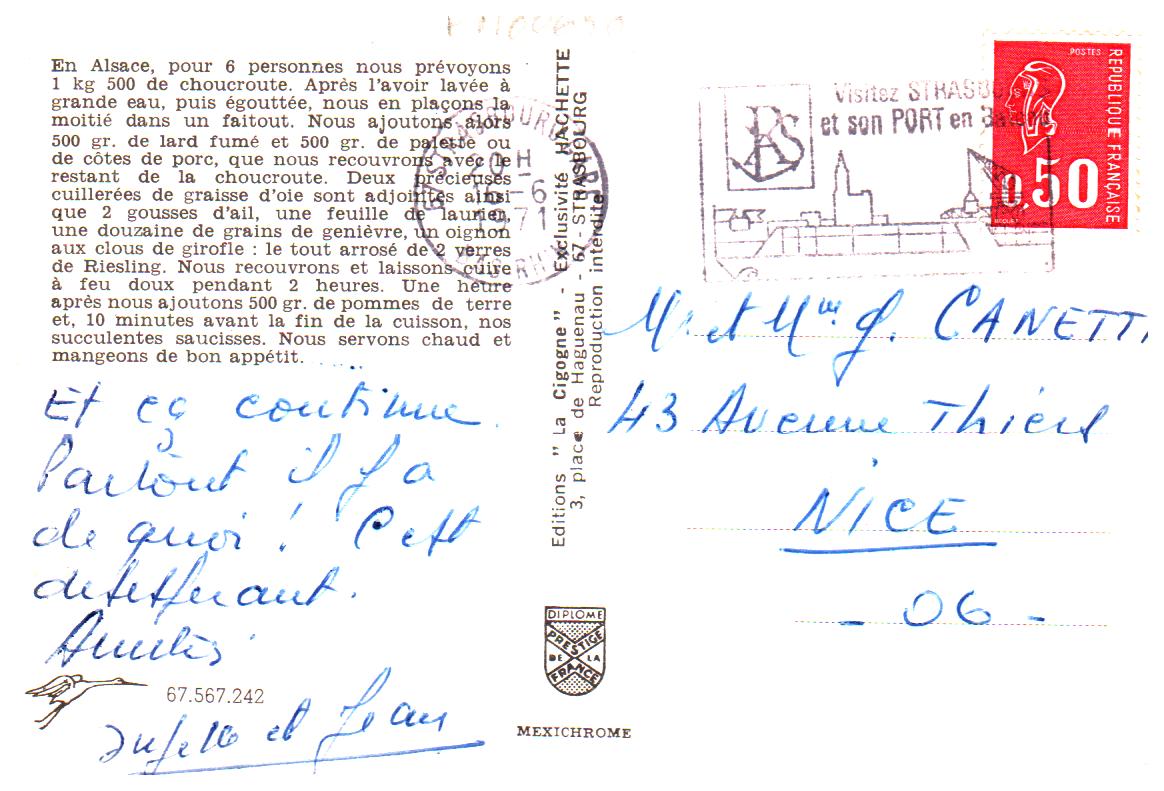 En Alsace, pour 6 personnes nous prévoyons
1 kg 500 de choucroute. Après l'avoir lavée à
grande eau, puis égouttée, nous en plaçons la
moitié dans un faitout. Nous ajoutons alors
500 gr. de lard fumé et 500 gr. de palette ou
de côtes de porc, que nous recouvrons avec le
restant de la choucroute. Deux précieuses
cuillerées de graisse d'oie sont adjointes ainsi
que 2 gousses d'ail, une feuille de laurier,
une douzaine de grains de genièvre, un oignon
aux clous de girofle : le tout arrosé de 2 verres
de Riesling. Nous recouvrons et laissons cuire
à feu doux pendant 2 heures. Une heure
après nous ajoutons 500 gr. de pommes de terre
et, 10 minutes avant la fin de la cuisson, nos
succulentes saucisses. Nous servons chaud et
mangeons de bon appétit.
Et ça continue.
Partout il y a
de quoi ! C'est
desesperant.
Amitiés
et Jean
67.567.242
Editions "La Cigogne" - Exclusivité HACHETTE
3, place de Haguenau - 67 - STRASBOURG
Reproduction interdite
DIPLOME
PRESTIGE
DE LA
FRANCE
MEXICHROME
STRASBOURG
20 H
16 - 6
1971
BAS RHIN
Visitez STRASBOU
et son PORT en
POSTES
REPUBLIQUE FRANÇAISE
0,50
BEQUET
Mr et Mme J. CANETTI
43 Avenue Thiers
NICE
- 06 -